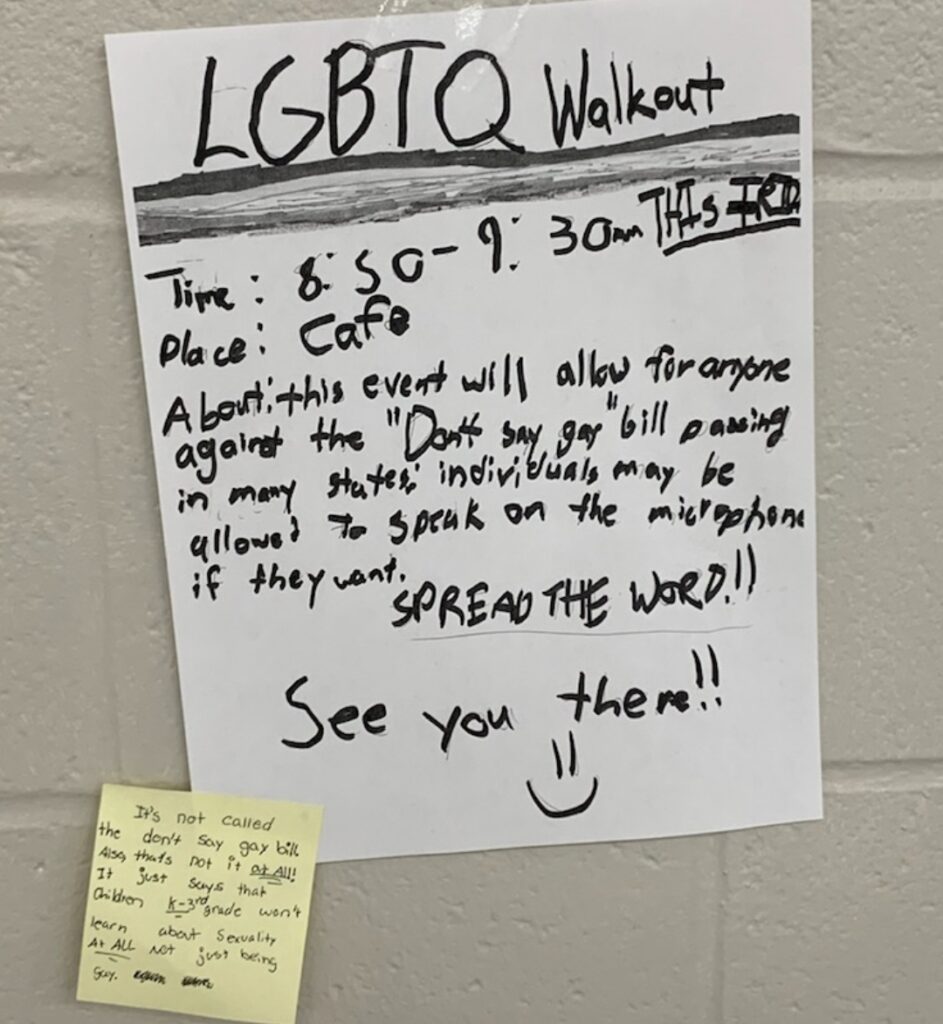 LGBTQ Walkout
Time: 8:50-9:30am THIS
Place: Cafe
About: this event will allow for anyone
against the "Don't say gay" bill passing
in many states; individuals may be
allowed to speak on the microphone
if they want.
SPREAD THE WORD!!
See you there!!
It's not called
the don't say gay bill.
Also, that's not it at All!
It just says that
Children K-3rd grade won't
learn about Sexuality
At ALL not just being
gay.